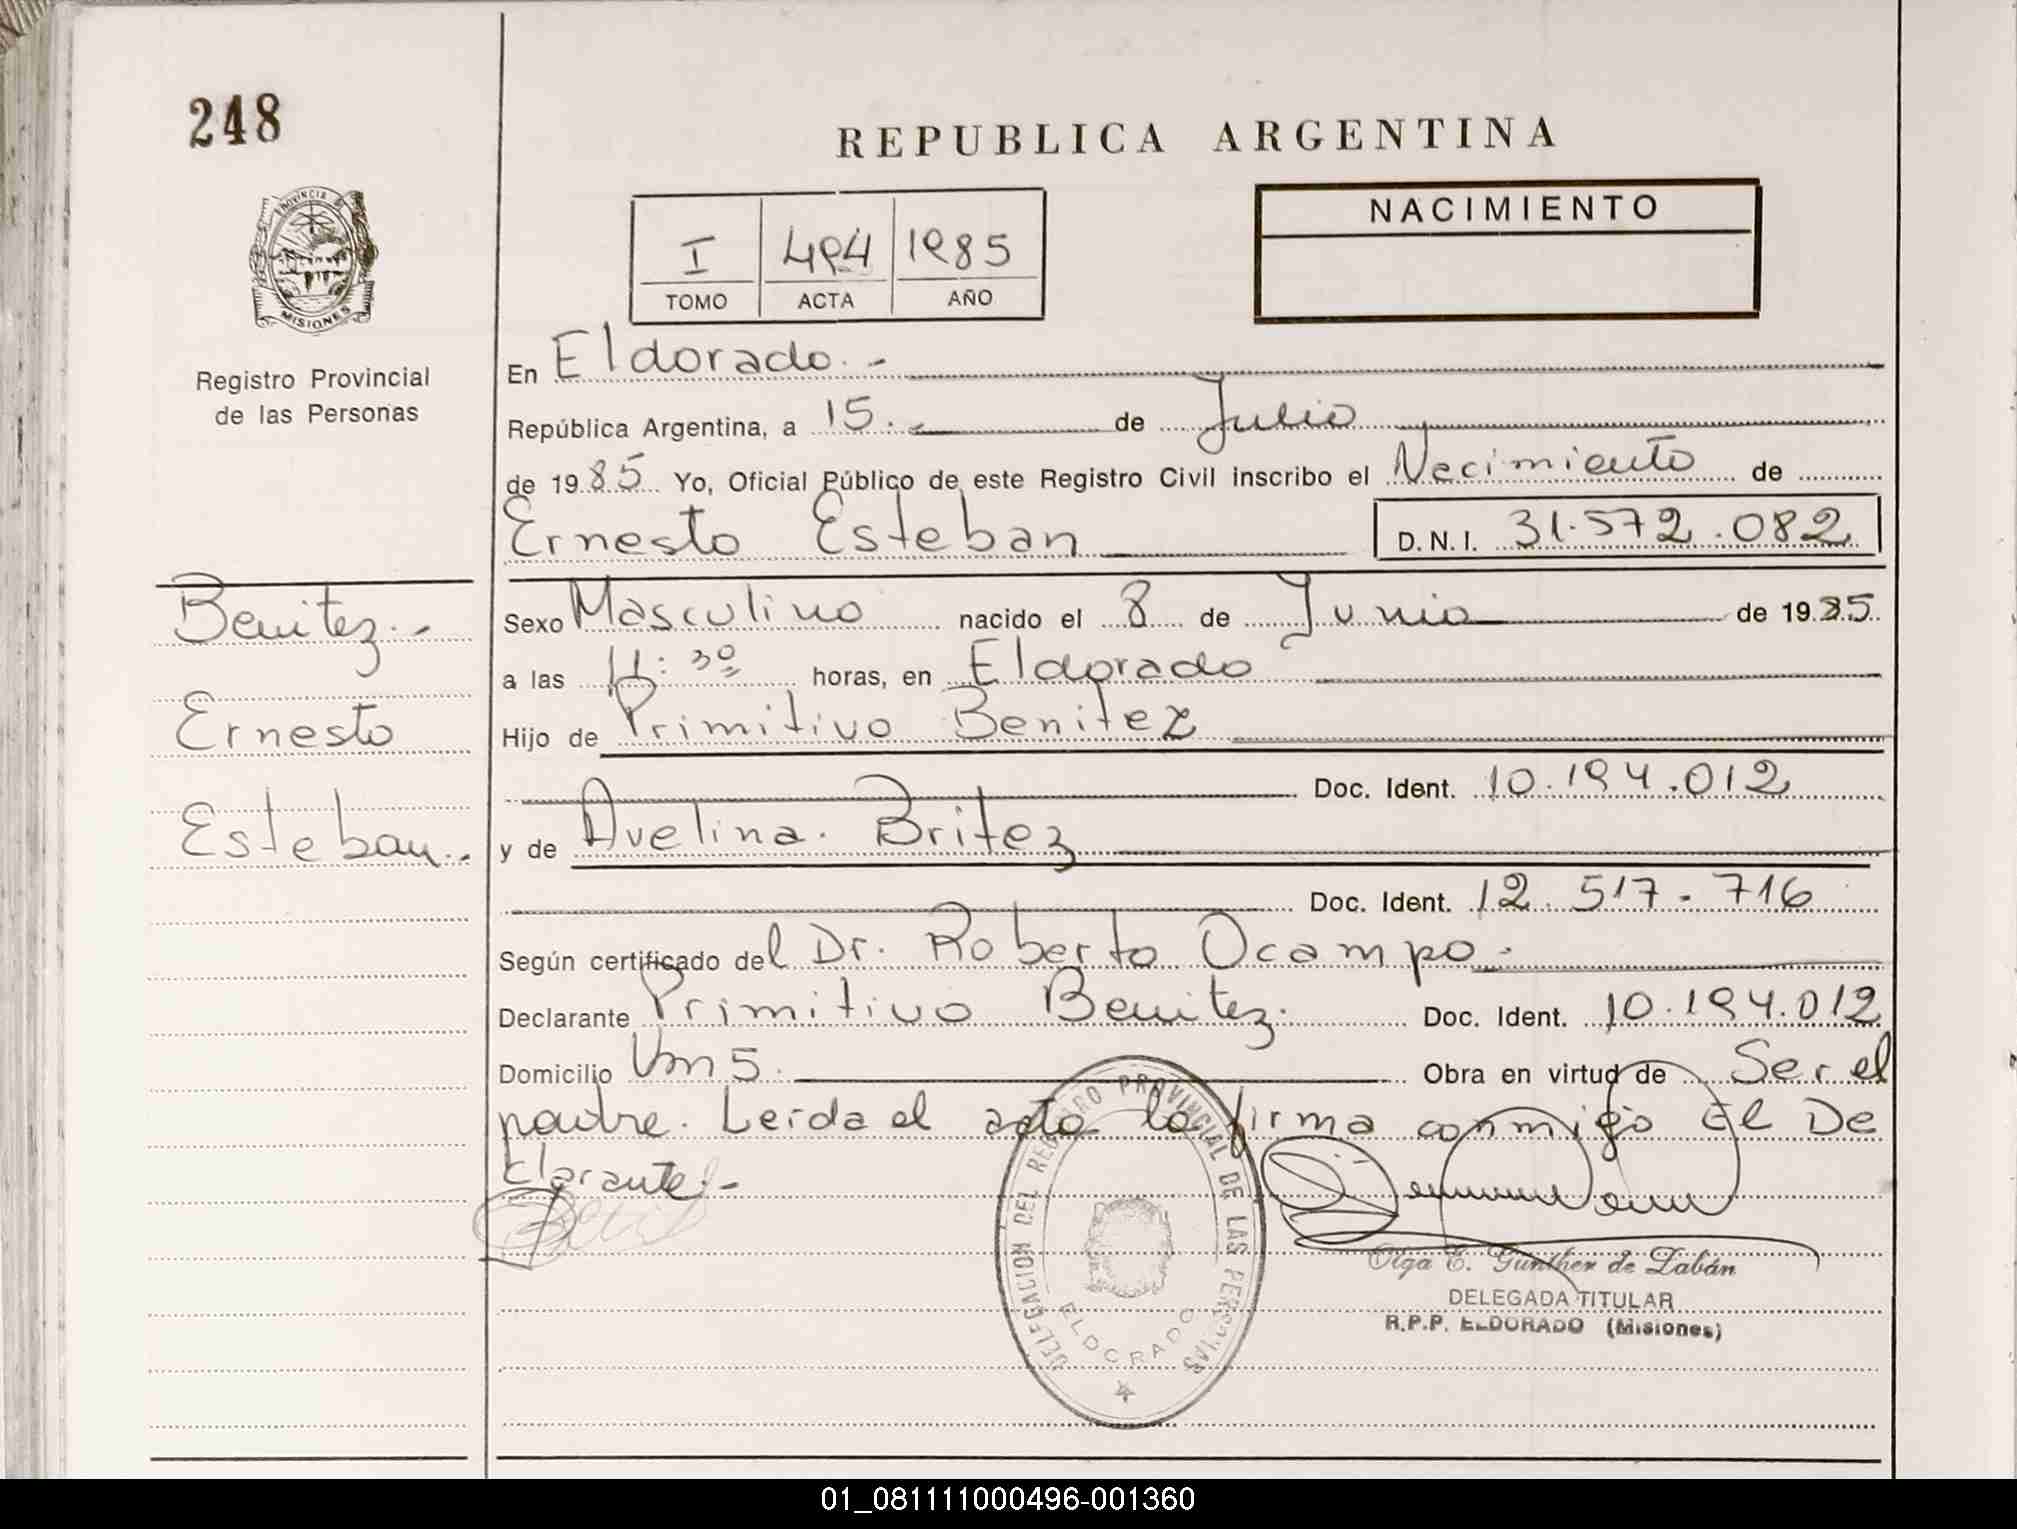 248
REPUBLICA ARGENTINA
NACIMIENTO
I 494 1985
TOMO ACTA AÑO
PROVINCIA DE
MISIONES
Registro Provincial
de las Personas
En Eldorado.-
República Argentina, a 15.- de Julio
de 1985 Yo, Oficial Público de este Registro Civil inscribo el Nacimiento de
Ernesto Esteban D.N.I. 31.572.082
Benitez.-
Ernesto
Esteban.-
Sexo Masculino nacido el 8 de Junio de 1985.
a las 11:30 horas, en Eldorado
Hijo de Primitivo Benitez
Doc. Ident. 10.194.012
y de Avelina Britez
Doc. Ident. 12.517.716
Según certificado del Dr. Roberto Ocampo.
Declarante Primitivo Benitez. Doc. Ident. 10.194.012
Domicilio Km 5. Obra en virtud de Ser el
padre. Leida el acta la firma conmigo El De
clarante.-
DELEGACION DEL REGISTRO PROVINCIAL DE LAS PERSONAS
ELDORADO
Olga E. Gunther de Labán
DELEGADA TITULAR
R.P.P. ELDORADO (Misiones)
01_081111000496-001360